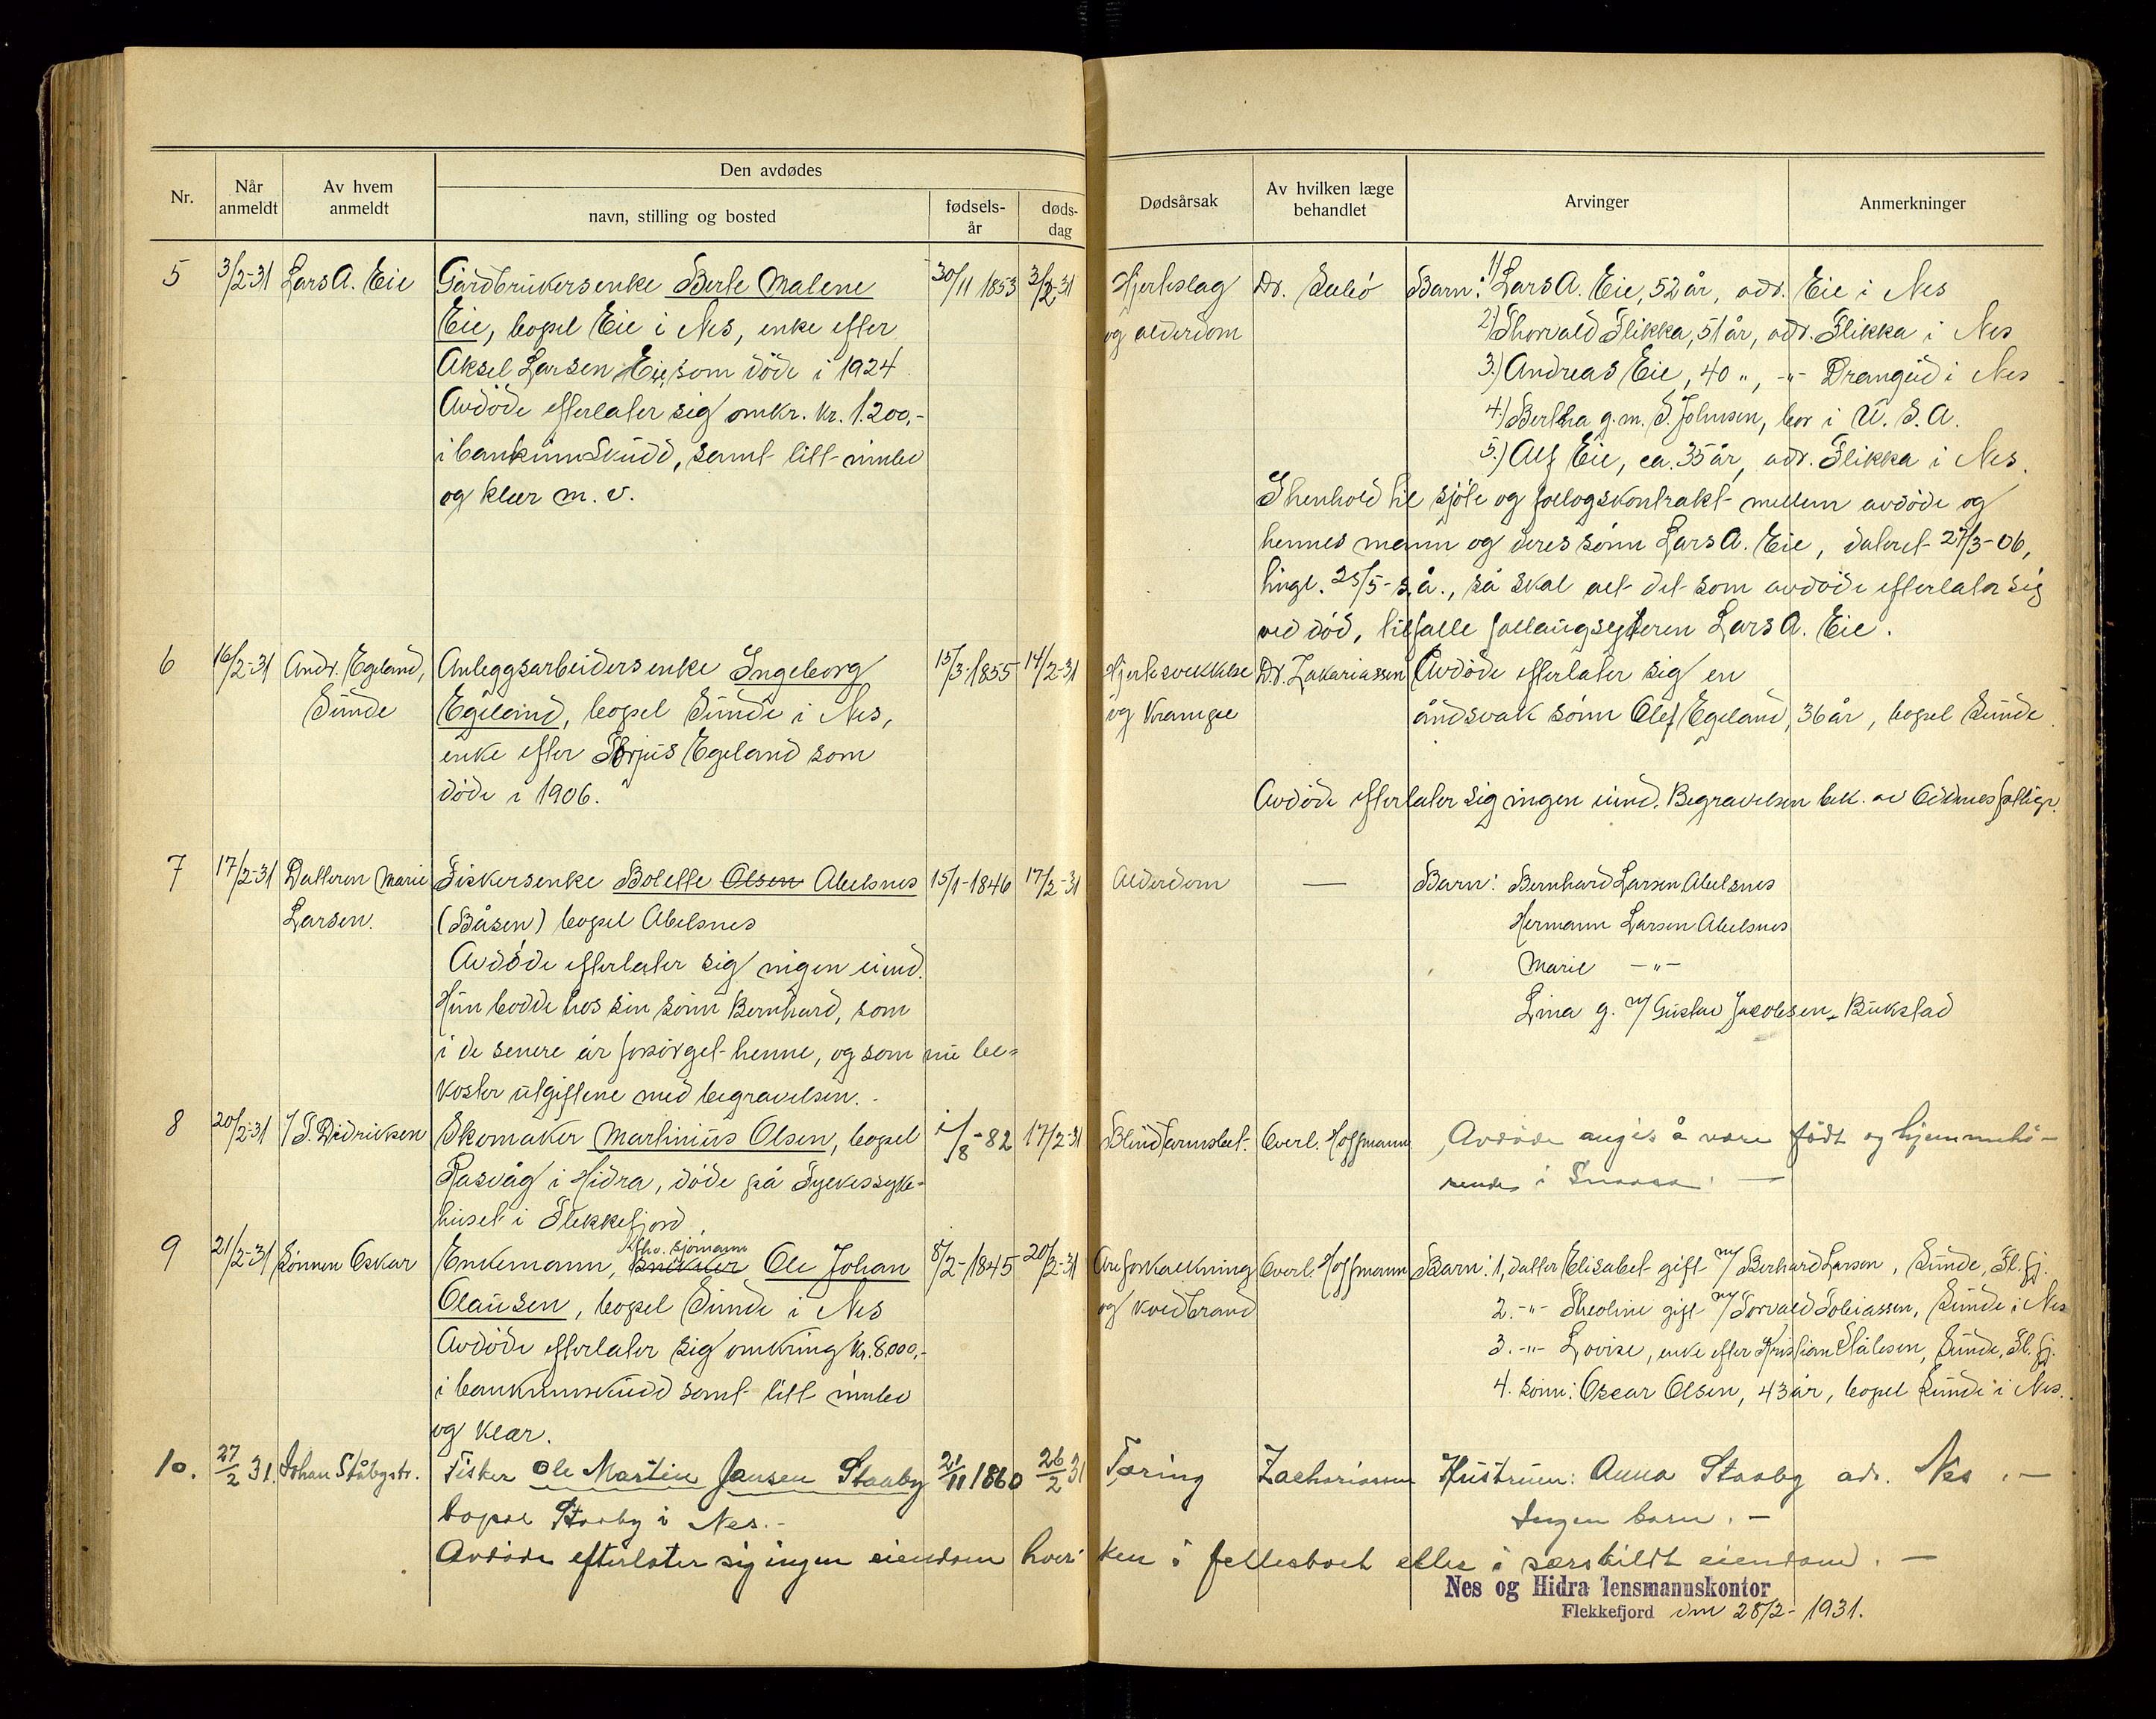 Nr.
Når anmeldt
Av hvem anmeldt
Den avdødes
navn, stilling og bosted
fødsels-
år
døds-
dag
Dødsårsak
Av hvilken læge
behandlet
Arvinger
Anmerkninger
5 3/2-31 Lars A. Eie Gårdbrukersenke Berte Malene 30/11 1853 3/2-31 Hjerteslag Dr. Barn: 1) Lars A. Eie, 52 år, adr. Eie i Nes
Eie, bopel Eie i Nes, enke efter og alderdom 2) Thorvald Flikka, 51 år, adr. Flikka i Nes
Aksel Larsen Eie, som döde i 1924. 3.) Andreas Eie, 40 ", -"- Drangeid i Nes
Avdöde efterlater sig omkr. kr. 1.200,- 4.) Bertha g.m. S. Johnsen, bor i U.S.A.
i bankinnskudd, samt litt innbo 5.) Alf Eie, ca. 35 år, adr. Flikka i Nes.
og klær m. v.
I henhold til skjöte og follogskontrakt mellem avdöde og
hennes mann og deres sönn Lars A. Eie, dateret 27/3-06,
tingl. 25/5- s.å., så skal alt det som avdöde efterlater sig
ved död, tilfalle Lars A. Eie.
6 16/2-31 Andr. Egeland, Anleggsarbeidersenke Ingeborg 15/3-1855 14/2-31 Hjertesvekkelse Dr. Zakariassen Avdöde efterlater sig en
Sunde Egeland, bopel Sunde i Nes, og krampe åndsvak sönn Olef Egeland, 36 år, bopel Sunde.
enke efter Torjus Egeland som
döde i 1906.
Avdöde efterlater sig ingen eiend. Begravelsen bek. av
7 17/2-31 Datteren Marie Fiskersenke Bolette Olsen Abelsnes 15/1-1846 17/2-31 Alderdom — Barn: Bernhard Larsen Abelsnes
Larsen. (Båsen) bopel Abelsnes Hermann Larsen Abelsnes
Avdöde efterlater sig ingen eiend. Marie -"-
Hun bodde hos sin sönn Bernhard, som Lina g. m/ Gustav Jacobsen, Bukstad
i de senere år forsörget henne, og som nu be=
koster utgiftene med begravelsen.-
8 20/2-31 T. Didriksen Skomaker Martinius Olsen, bopel 1/8-82 17/2-31 Blindtarmsbet. Overl. Hoffmann Avdöde angis å være født og hjemmehö-
Rasvåg i Hidra, döde på Fylkessyke- rende i
huset i Flekkefjord.
9 21/2-31 Sönnen Oskar Enkemann, fhv. sjömann Ole Johan 8/2-1845 20/2-31 Åreforkalkning Overl. Hoffmann Barn: 1, datter Elisabet gift m/ Berhard Larsen, Sunde, Fl.fj.
Olausen, bopel Sunde i Nes og koldbrand 2. -"- Theoline gift m/ Torvald Tobiassen, Sunde i Nes
Avdöde efterlater sig omkring kr. 8.000,- 3. -"- Lovise, enke efter Kristian Stålesen, Sunde, Fl.fj.
i bankinnskudd samt litt innbo 4. sönn: Oscar Olsen, 43 år, bopel Sunde i Nes.
og klær.
10. 27/2 31. Johan Fisker Ole Martin Jansen Staaby 21/11 1860 26/2 31 Tæring Zachariassen Hustruen: Anna Staaby adr. Nes.-
bopæl Staaby i Nes.- Ingen barn.-
Avdöde efterlater sig ingen eiendom hver- ken i fellesboet eller i særskildt eiendom.-
Nes og Hidra lensmannskontor
Flekkefjord den 28/2-1931.